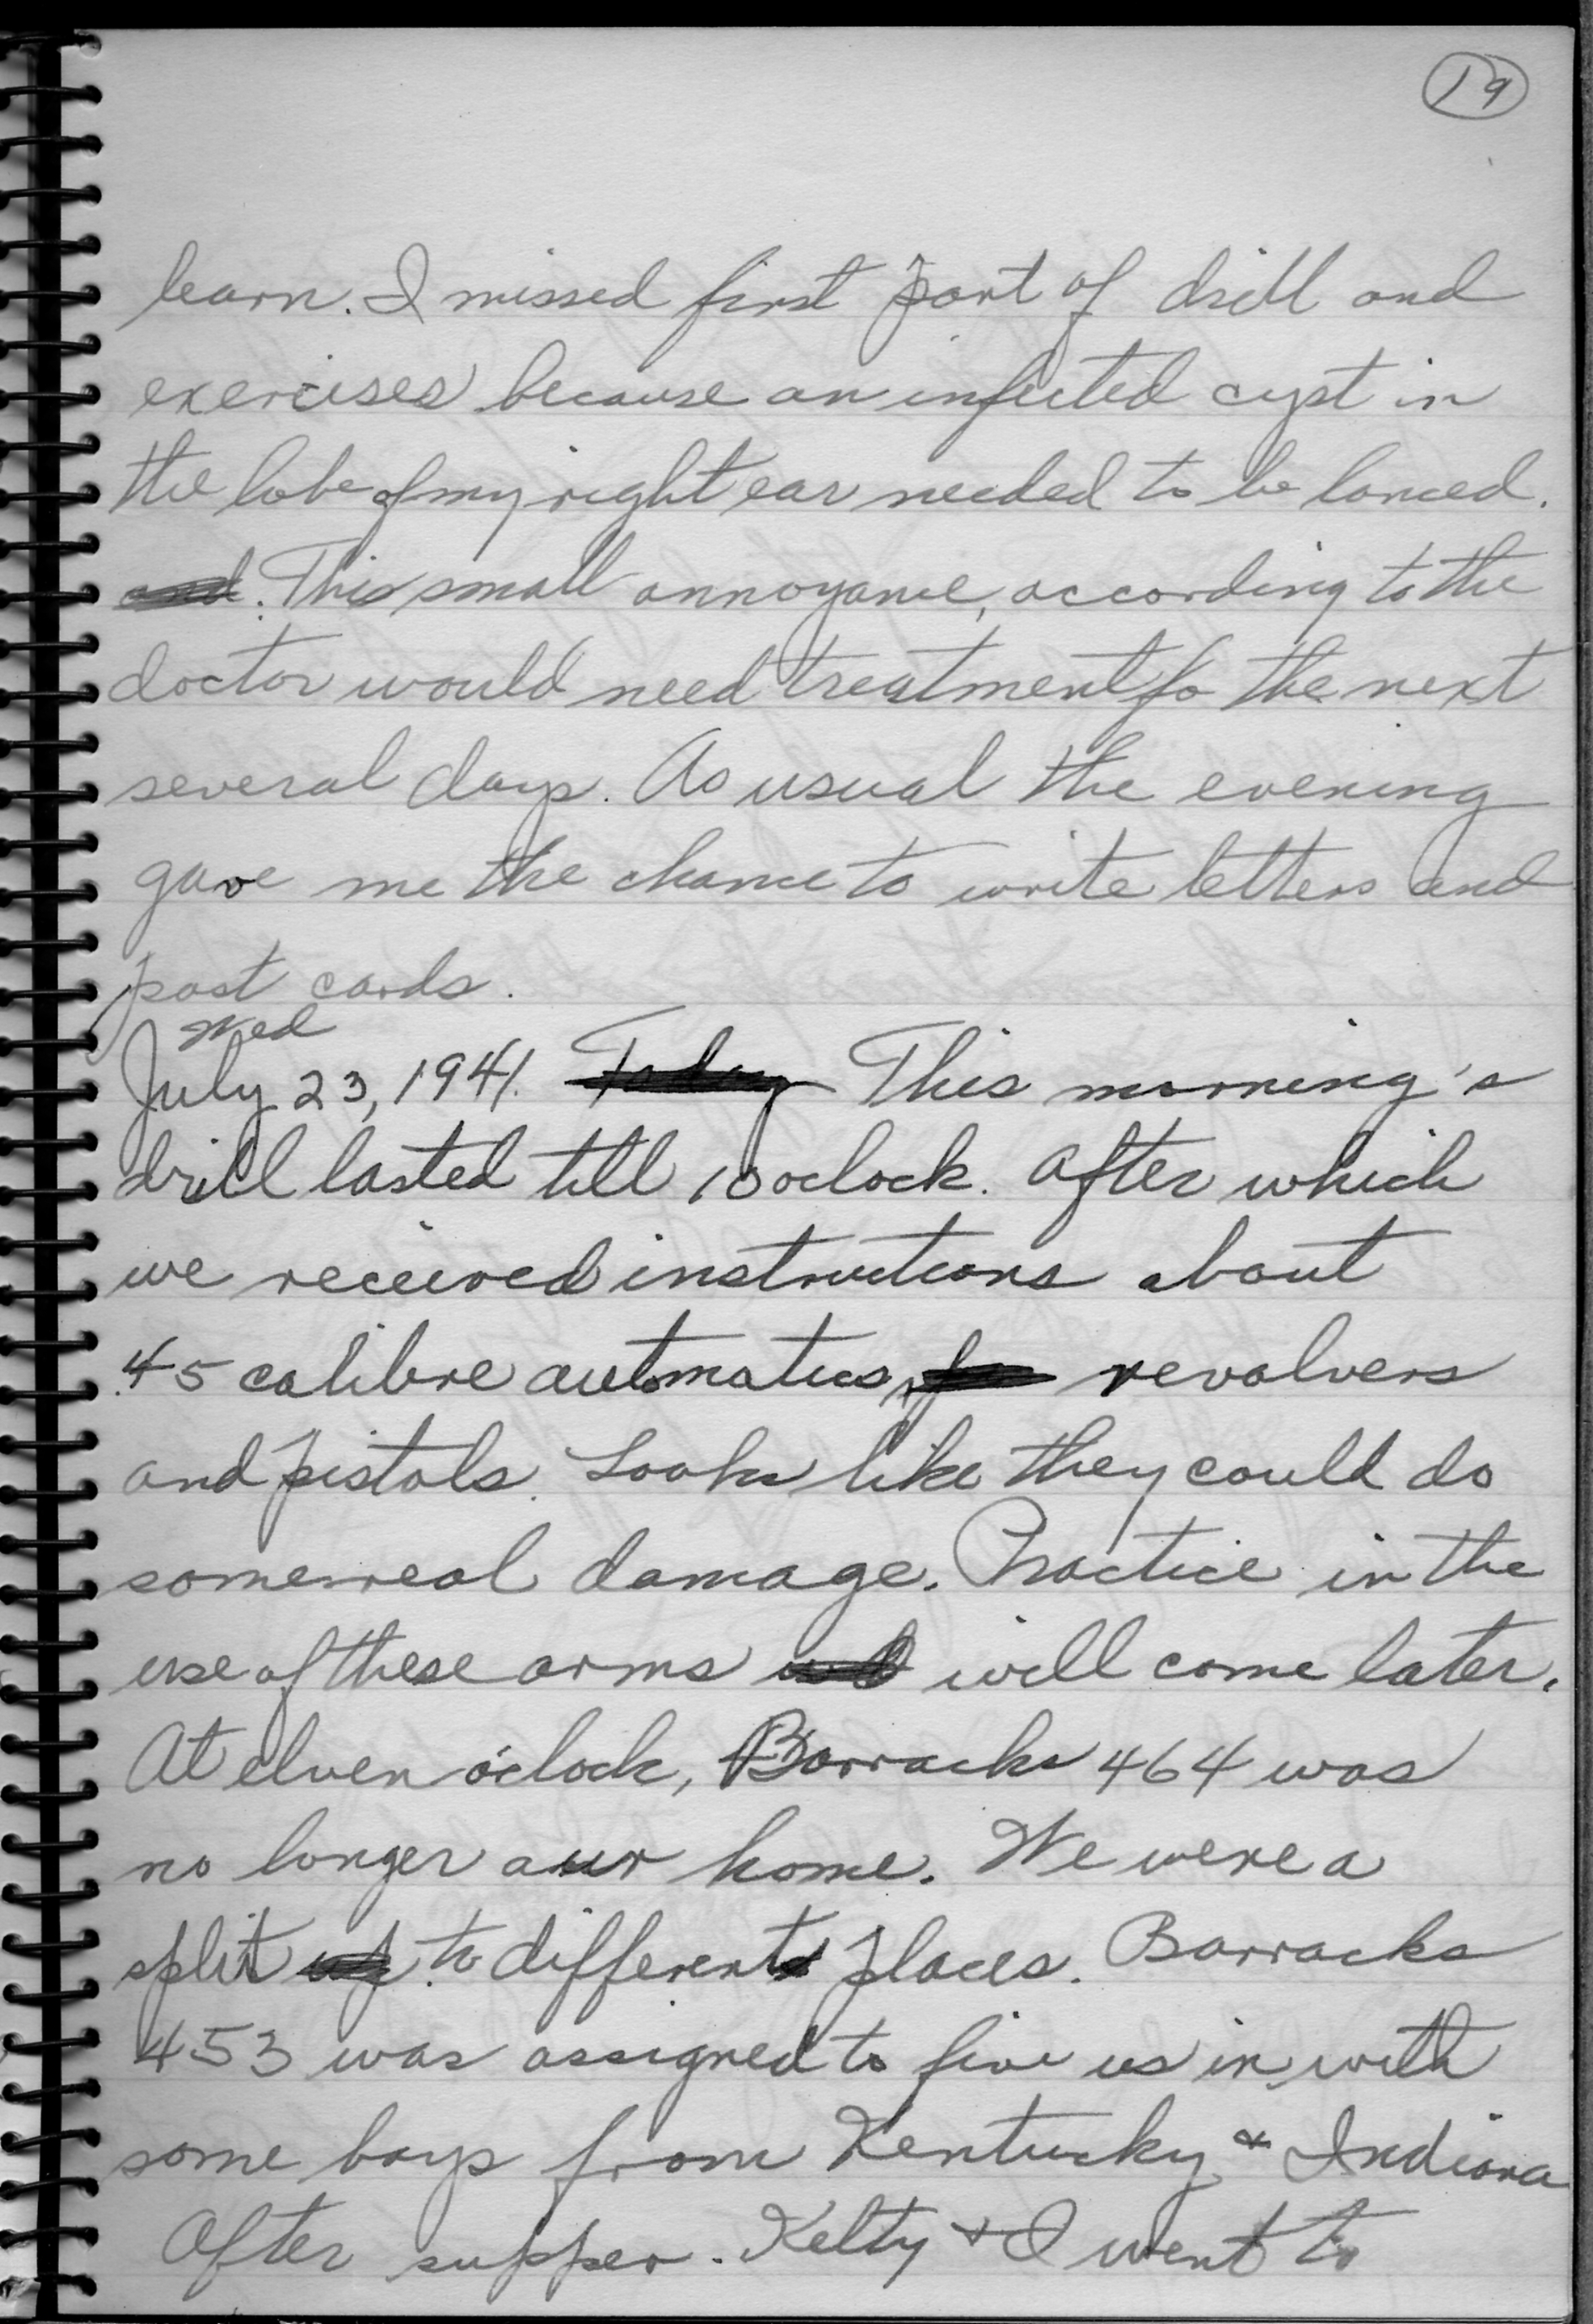 19
learn. I missed first part of drill and
exercises because an infected cyst in
the lobe of my right ear needed to be lanced.
and. This small annoyance, according to the
doctor would need treatment fo the next
several days. As usual the evening
gave me the chance to write letters and
post cards.
Wed
July 23, 1941. Today This morning's
drill lasted till 10 oclock. After which
we received instructions about
.45 calibre automatics, revolvers
and pistols. Looks like they could do
some real damage. Practice in the
use of these arms will come later.
At elven o'clock, Barracks 464 was
no longer aur home. We were a
split up to different places. Barracks
453 was assigned to five us in with
some boys from Kentucky & Indiana
After supper. Kelty & I went to